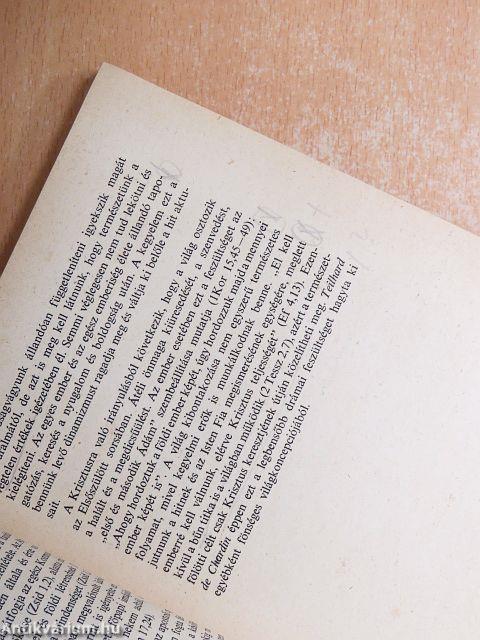 ságvágyunk állandóan függetleníteni igyekszik magát
uralmától, de azt is meg kell látnunk, hogy természetünk a
végtelen értékek igézetében él. Semmi véglegesen nem tud lekötni és
kielégíteni. Az egyes ember és az egész emberiség élete állandó tapo-
gatózás, keresés a nyugalom és boldogság után. A kegyelem ezt a
bennünk levő dinamizmust ragadja meg és váltja ki belőle a hit aktu-
sait.
A Krisztusra való irányulásból következik, hogy a világ osztozik
az Elsőszülött sorsában. Átéli önmaga kiüresedését, a szenvedést,
a halált és a megdicsőülést. Az ember esetében ezt a feszültséget az
„első és második Ádám” szembeállítása mutatja (1Kor 15,45—49):
„Ahogy hordoztuk a földi ember képét úgy hordozzuk majd a mennyei
ember képét is”. A világ kibontakozása nem egyszerű természetes
folyamat, mivel kegyelmi erők is munkálkodnak benne. „El kell
jutnunk a hitnek és az Isten Fia megismerésének egységére, meglett
emberré kell válnunk, elérve Krisztus teljességét” (Ef 4,13). Ezen-
kívül a bűn titka is a világban működik (2 Tessz 2,7), azért a természet-
fölötti célt csak Krisztus keresztjének útján közelítheti meg. Teilhard
de Chardin éppen ezt a legbensőbb drámai feszültséget hagyta ki
egyébként fönséges világkoncepciójából.
Antikvarium.hu